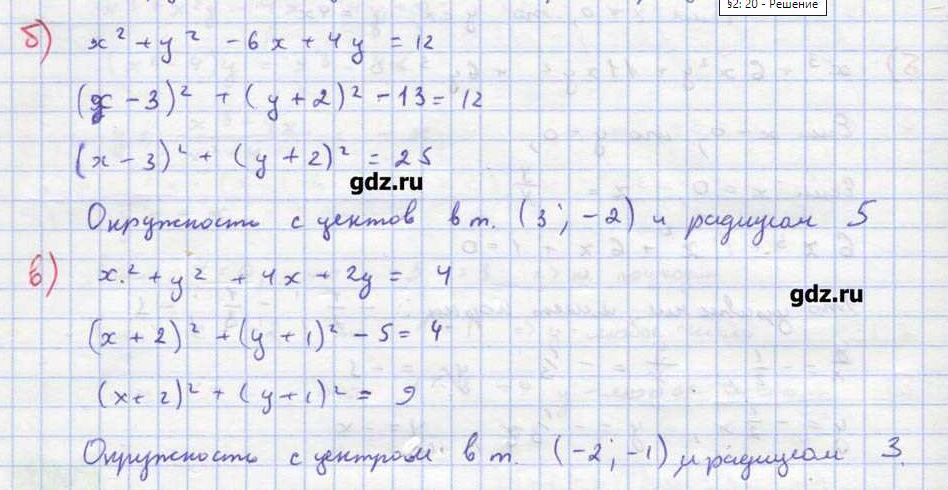 §2: 20 - Решение
б) x² + y² - 6x + 4y = 12
(x - 3)² + (y + 2)² - 13 = 12
(x - 3)² + (y + 2)² = 25
gdz.ru
Окружность с центов в т. (3; -2) и радиусом 5
в) x² + y² + 4x + 2y = 4
gdz.ru
(x + 2)² + (y + 1)² - 5 = 4
(x + 2)² + (y + 1)² = 9
Окружность с центром в т. (-2; -1) и радиусом 3.